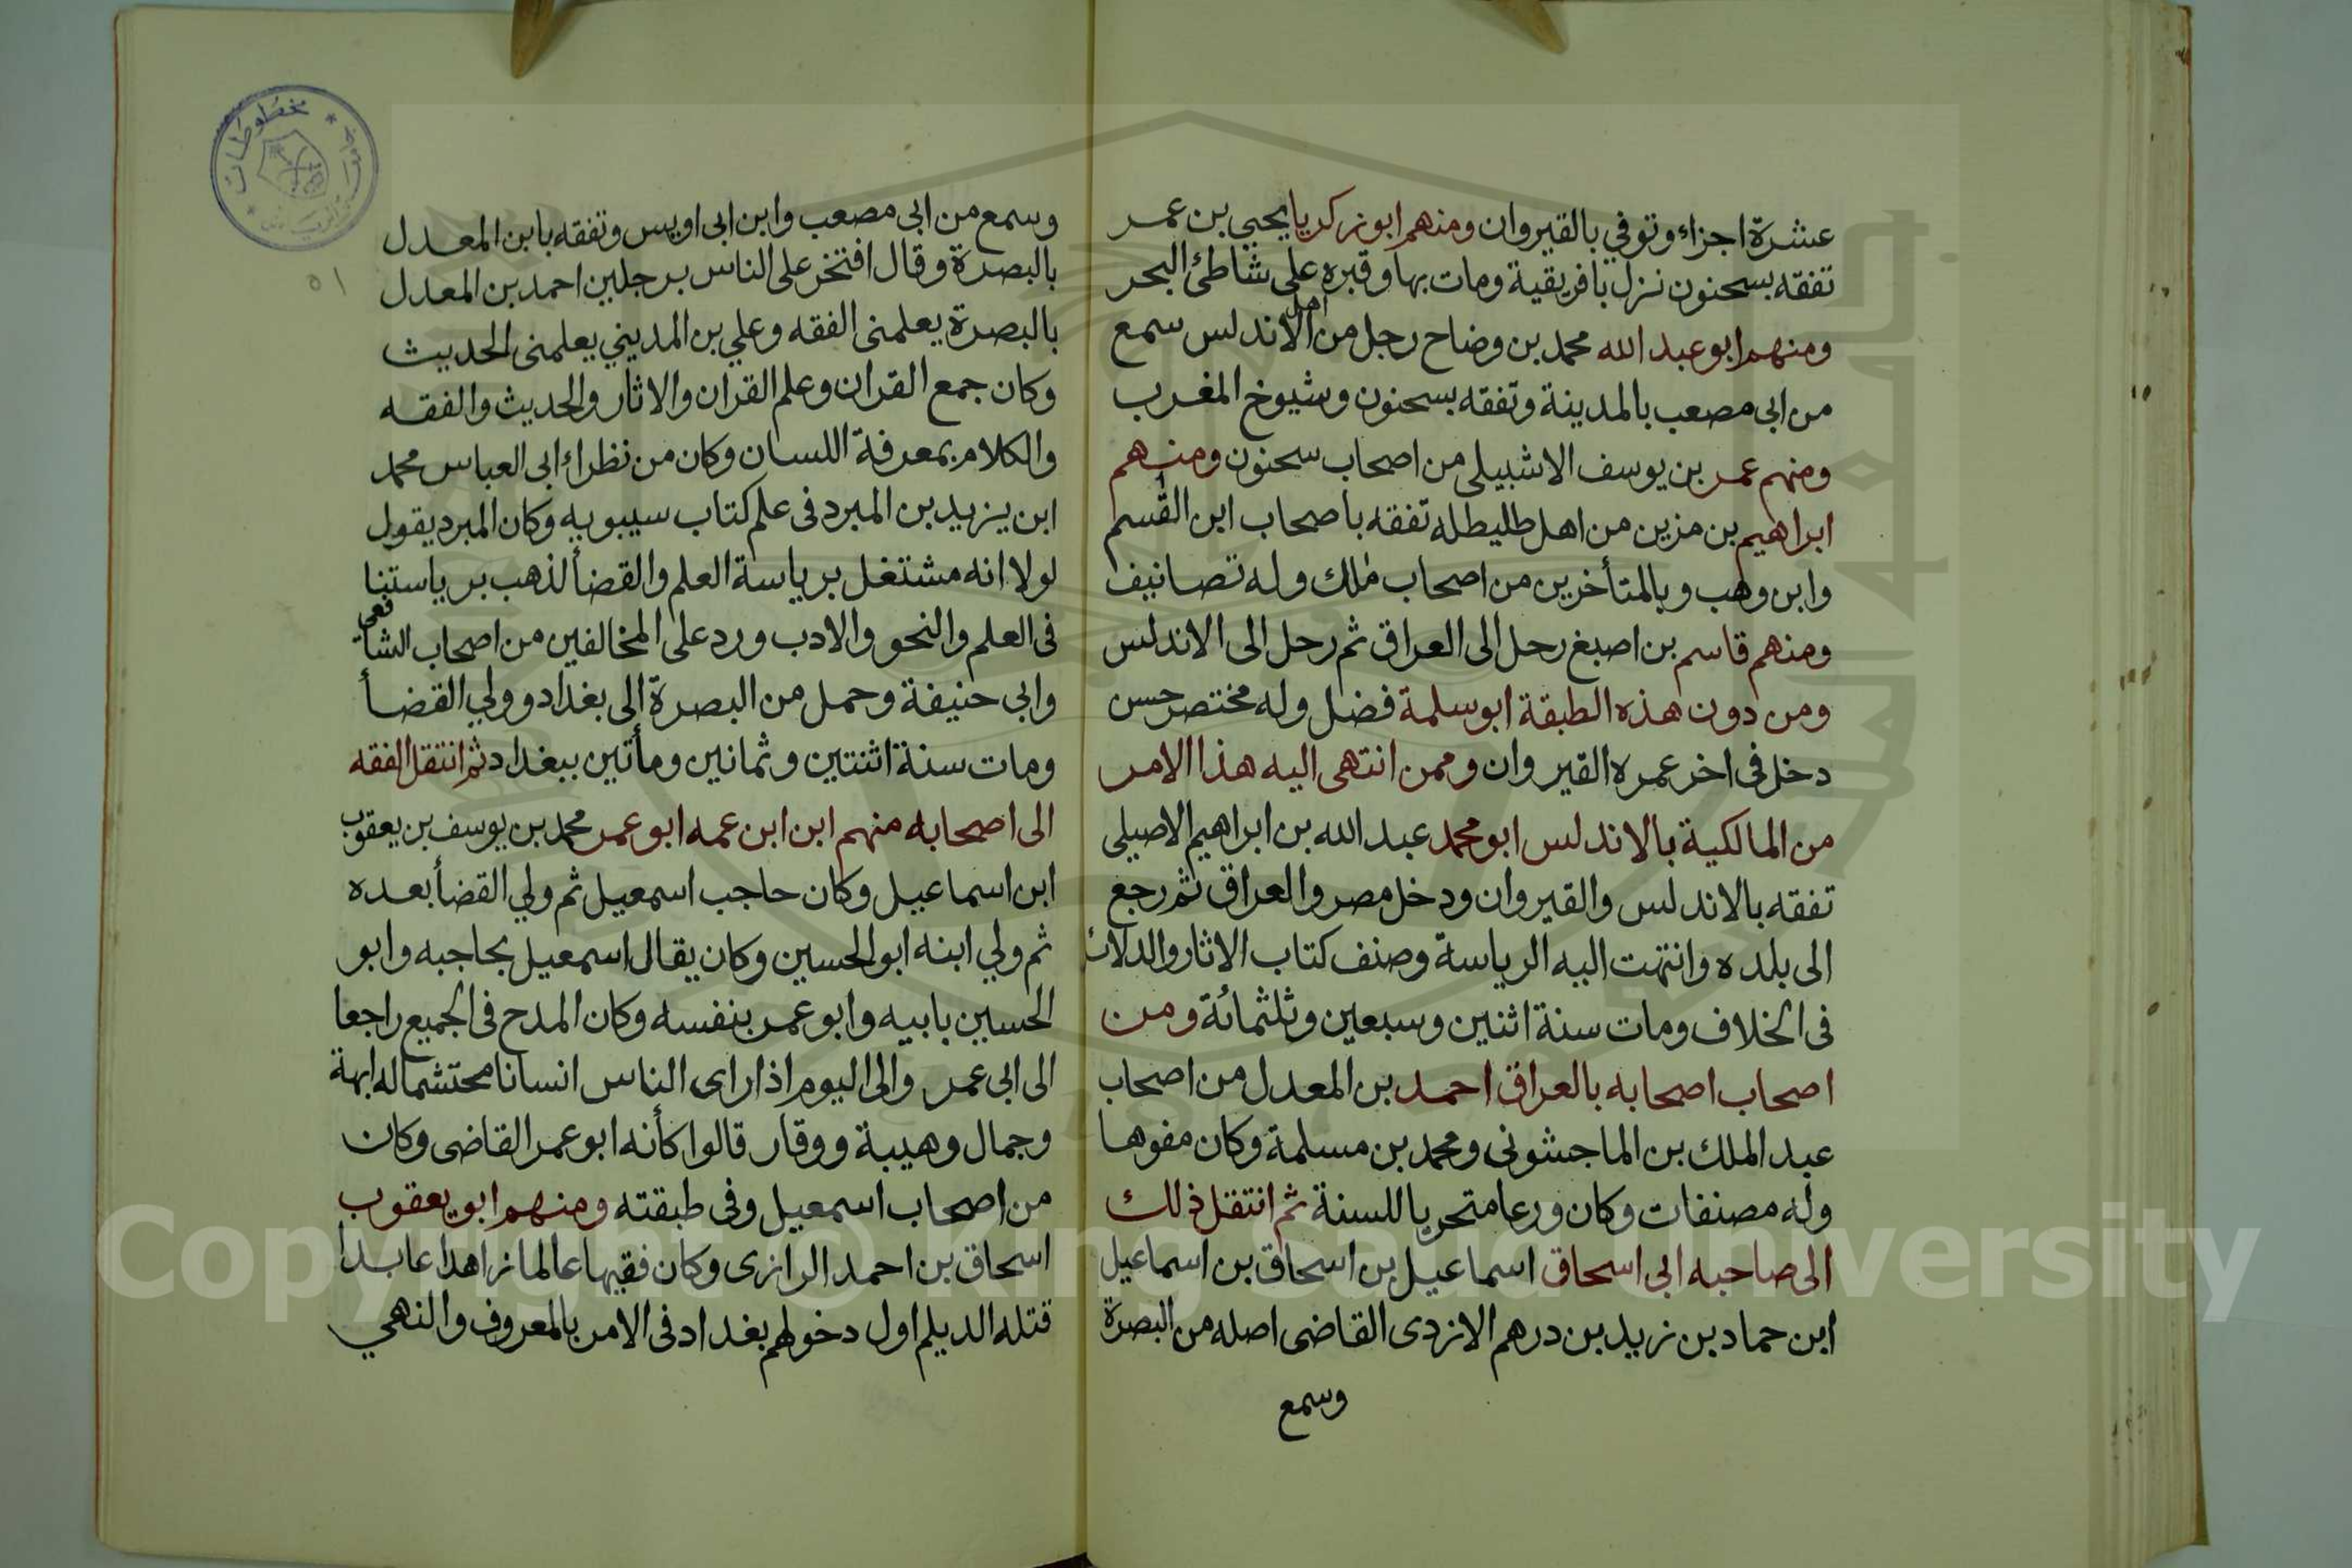 عشرة اجزاء وتوفي بالقيروان ومنهم ابو زكريا يحيى بن عمر
تفقه بسحنون نزل بافريقية ومات بها وقبره على شاطئ البحر
ومنهم ابو عبد الله محمد بن وضاح رجل من اهل الاندلس سمع
من ابى مصعب بالمدينة وتفقه بسحنون وشيوخ المغرب
ومنهم عمر بن يوسف الاشبيلى من اصحاب سحنون ومنهم
ابراهيم بن مزين من اهل طليطله تفقه باصحاب ابن القسم
وابن وهب وبالمتأخرين من اصحاب ملك وله تصانيف
ومنهم قاسم بن اصبغ رحل الى العراق ثم رحل الى الاندلس
ومن دون هذه الطبقة ابو سلمة فضل وله مختصر حسن
دخل فى اخر عمره القيروان وممن انتهى اليه هذا الامر
من المالكية بالاندلس ابو محمد عبد الله بن ابراهيم الاصيلى
تفقه بالاندلس والقيروان ودخل مصر والعراق ثم رجع
الى بلده وانتهت اليه الرياسة وصنف كتاب الاثار والدلائل
فى الخلاف ومات سنة اثنين وسبعين وثلثمائة ومن
اصحاب اصحابه بالعراق احمد بن المعدل من اصحاب
عبد الملك بن الماجشونى ومحمد بن مسلمة وكان مفوها
وله مصنفات وكان ورعا متحريا للسنة ثم انتقل ذلك
الى صاحبه ابى اسحاق اسماعيل بن اسحاق بن اسماعيل
ابن حماد بن زيد بن درهم الازدى القاضى اصله من البصرة
وسمع
وسمع من ابى مصعب وابن ابى اويس وتفقه بابن المعدل
بالبصرة وقال افتخر على الناس برجلين احمد بن المعدل
بالبصرة يعلمنى الفقه وعلي بن المديني يعلمنى الحديث
وكان جمع القران وعلم القران والاثار والحديث والفقه
والكلام بمعرفة اللسان وكان من نظراء ابى العباس محمد
ابن يزيد بن المبرد فى علم كتاب سيبويه وكان المبرد يقول
لولا انه مشتغل برياسة العلم والقضأ لذهب برياستنا
فى العلم والنحو والادب ورد على المخالفين من اصحاب الشافعى
وابى حنيفة وحمل من البصرة الى بغداد وولي القضأ
ومات سنة اثنتين وثمانين ومأتين ببغداد ثم انتقل الفقه
الى اصحابه منهم ابن ابن عمه ابو عمر محمد بن يوسف بن يعقوب
ابن اسماعيل وكان حاجب اسمعيل ثم ولي القضأ بعده
ثم ولي ابنه ابو الحسين وكان يقال اسمعيل بحاجبه وابو
الحسين بابيه وابو عمر بنفسه وكان المدح فى الجميع راجعا
الى ابى عمر والى اليوم اذا راى الناس انسانا محتشما له ابهة
وجمال وهيبة ووقار قالوا كأنه ابو عمر القاضى وكان
من اصحاب اسمعيل وفى طبقته ومنهم ابو يعقوب
اسحاق بن احمد الرازى وكان فقيها عالما زاهدا عابدا
قتله الديلم اول دخولهم بغداد فى الامر بالمعروف والنهي
٥١
مخطوطات
Copyright © King Saud University